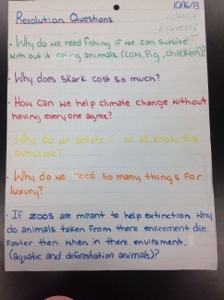 10/6/13
Revolution Questions
• Why do we need fishing if we can survive
with out it eating animals (cow, pig, chicken)?
• Why does shark cost so much?
• How can we help climate change without
having every one agree?
• Why do we pollute if we all know the
outcome?
• Why do we need so many things for
luxury?
• If zoos are meant to help extinction why
do animals taken from there enviroment die
faster then when in there enviroment.
(aquatic and deforestation animals)?